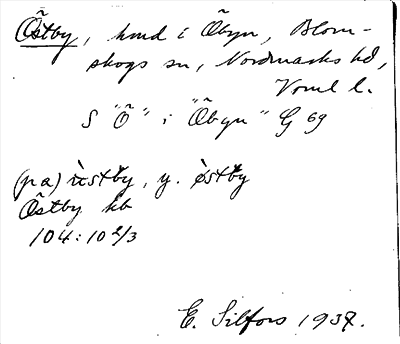 Östby, hmd i Öbyn, Blom-
skogs sn, Nordmarks hd,
Vrml l.
S "Ö" i "Öbyn" G 69
(pa) ùstby, y. østby
Östby kb
104:10 2/3
E. Silfors 1937.